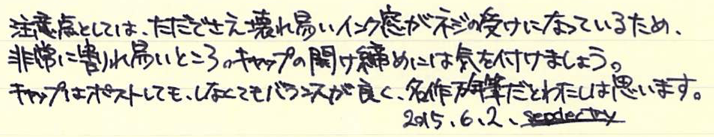 注意点としては、ただでさえ壊れ易いインク窓がネジの受けになっているため、
非常に割れ易いところ。キャップの開け締めには気を付けましょう。
キャップはポストしても、しなくてもバランスが良く、名作万年筆だとわたしは思います。
2015.6.2.